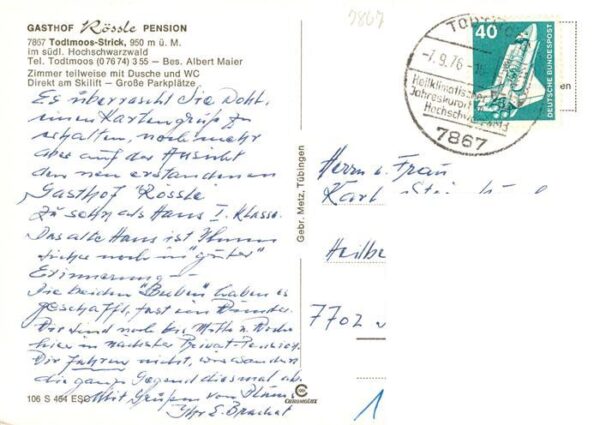 GASTHOF Rössle PENSION
7867 Todtmoos-Strick, 950 m ü. M.
im südl. Hochschwarzwald
Tel. Todtmoos (0 76 74) 3 55 — Bes. Albert Maier
Zimmer teilweise mit Dusche und WC
Direkt am Skilift — Große Parkplätze
Es überrascht Sie wohl,
einen Kartengruß zu
erhalten, noch mehr
aber auf der Ansicht
den neu erstandenen
Gasthof Rössle
zu sehn als Haus I. Klasse.
Das alte Haus ist Ihnen
sicher noch in "guter"
Erinnerung —
Die beiden "Buben" haben es
geschafft, fast ein Wunder.
Wir sind noch bis Mitte n. Woche
hier in nächster Privat-Pension.
Wir fahren nicht, wir wandern
die ganze Gegend diesmal ab.
Mit Grüßen von Haus
Ihr E.
106 S 464 ESC
Gebr. Metz, Tübingen
7867
TODTMOOS
-7.9.76-
Heilklimatischer
Jahreskurort
Hochschwarzwald
7867
40
DEUTSCHE BUNDESPOST
en
Herrn u. Frau
Karl
Heilb
7702
1